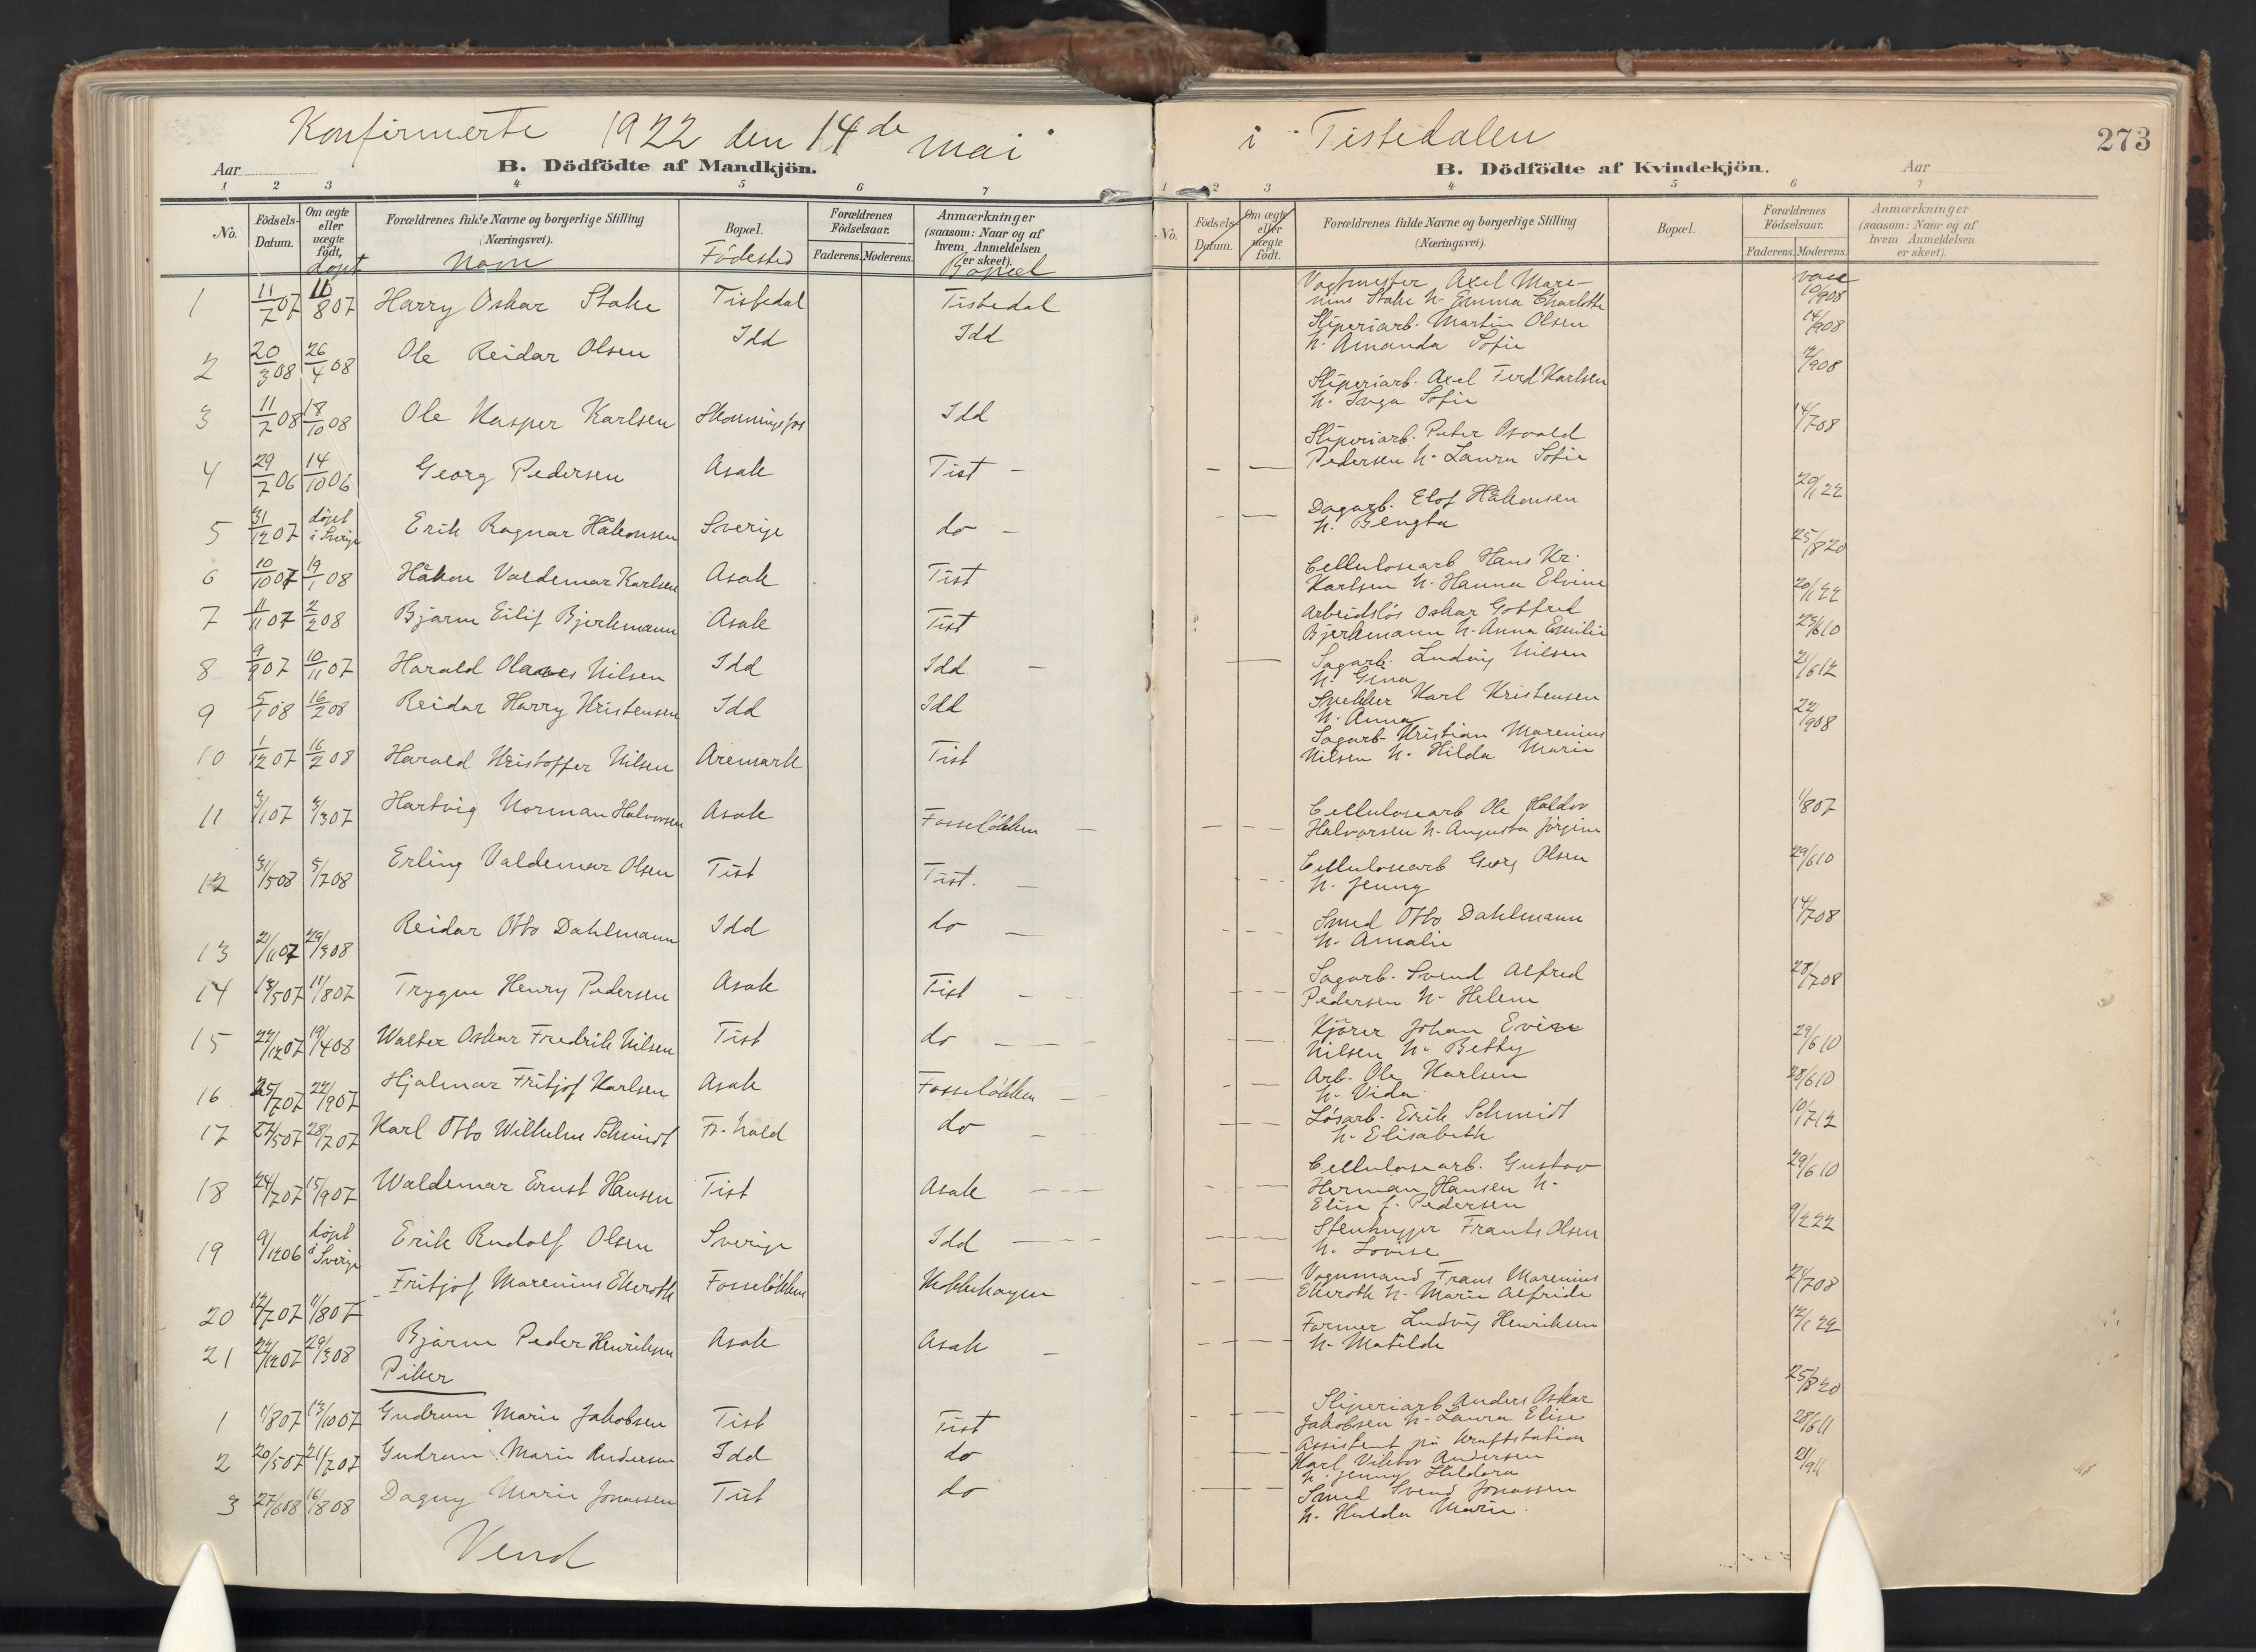 Konfirmerte 1922 den 14de mai i Tistedalen
273
Aar
B. Dödfödte af Mandkjön.
1 2 3 4 5 6 7
No.
Födsels-Datum.
Om ægte eller uægte født,
døpt
Forældrenes fulde Navne og borgerlige Stilling (Næringsvei).
Navn
Bopæl.
Födested
Forældrenes Födselsaar.
Faderens. Moderens.
Anmærkninger (saasom: Naar og af hvem Anmeldelsen er skeet).
Bopæl
1 11/7 07 11/8 07 Harry Oskar Stake Tistedal Tistedal
2 20/3 08 26/4 08 Ole Reidar Olsen Idd Idd
3 11/7 08 18/10 08 Ole Kasper Karlsen Idd
4 29/7 06 14/10 06 Georg Pedersen Asak Tist
5 31/12 07 døpt i Sverige Erik Ragnar Håkonsen Sverige do
6 10/10 07 19/1 08 Håkon Valdemar Karlsen Asak Tist
7 11/11 07 2/2 08 Bjarne Eilif Bjerkmann Asak Tist
8 9/9 07 10/11 07 Harald Nilsen Idd Idd
9 5/1 08 16/2 08 Reidar Harry Kristensen Idd Idd
10 1/12 07 16/2 08 Harald Kristoffer Nilsen Aremark Tist
11 07 07 Hartvig Norman Halvorsen Asak Fosseløkken
12 31/5 08 5/7 08 Erling Valdemar Olsen Tist Tist.
13 07 29/3 08 Reidar Otto Dahlmann Idd do
14 13/5 07 11/8 07 Trygve Henry Pedersen Asak Tist
15 22/12 07 19/4 08 Walter Oskar Fredrik Nilsen Tist do
16 25/7 07 22/9 07 Hjalmar Fritjof Karlsen Asak Fosseløkken
17 27/5 07 28/7 07 Karl Otto Wilhelm Schmidt Fr. hald do
18 24/7 07 15/9 07 Waldemar Ernst Hansen Tist Asak
19 9/12 06 døpt i Sverige Erik Rudolf Olsen Sverige Idd
20 12/7 07 11/8 07 Fritjof Marenius Ekeroth Fosseløkken
21 22/12 07 29/3 08 Bjarne Peder Henriksen Asak Asak
Piker
1 1/8 07 13/10 07 Gudrun Marie Jakobsen Tist Tist
2 20/5 07 21/7 07 Gudrun Marie Andersen Idd do
3 27/6 08 16/8 08 Dagny Marie Jonassen Tist do
Vend
B. Dödfödte af Kvindekjön.
Aar
1 2 3 4 5 6 7
No.
Födsels-Datum.
Om ægte eller uægte födt.
Forældrenes fulde Navne og borgerlige Stilling (Næringsvei).
Bopæl.
Forældrenes Födselsaar.
Faderens. Moderens.
Anmærkninger (saasom: Naar og af hvem Anmeldelsen er skeet).
vacc
Vagtmester Axel Mare-
nius Stake h. Emma Charlotte 10/9 08
Sliperiarb. Martin Olsen 14/9 08
h. Amanda Sofie
Sliperiarb. Axel Ferd Karlsen 12/9 08
h. Inga Sofie
Sliperiarb. Peter Osvald 14/7 08
Pedersen h. Laura Sofie
Dagarb. Elof Håkonsen 20/1 22
h. Bengta
Cellulosearb Hans Kr. 25/8 20
Karlsen h. Hanna Elvine
Arbeidsløs Oskar Gotfred 20/1 22
Bjerkmann h. Anna Emilie
Sagarb. Ludvig Nilsen 23/6 10
h. Gina
Snekker Karl Kristensen 21/6 12
h. Anna
Sagarb. Kristian Marenius 22/9 08
Nilsen h. Hilda Marie
Cellulosearb Ole Haldor 1/8 07
Halvorsen h. Augusta Jørgine
Cellulosearb Georg Olsen 29/6 10
h. Jenny
Smed Otto Dahlmann 14/7 08
h. Amalie
Sagarb. Svend Alfred 28/7 08
Pedersen h. Helene
Kjører Johan 29/6 10
Nilsen h. Betty
Arb. Ole Karlsen 28/6 10
h. Vida
Løsarb. Erik Schmidt 10/7 12
h. Elisabeth
Cellulosearb. Gustav 29/6 10
Herman Hansen h.
Elise f. Pedersen
Stenhugger Frants Olsen 9/2 22
h. Lovise
Vognmand Frans Marenius 24/7 08
Ekeroth h. Marie Alfride
Former Ludvig Henriksen 12/1 22
h. Matilde
Sliperiarb Anders Oskar 25/8 20
Jakobsen h. Laura Elise
Assistent på Kraftstation 28/6 11
Karl Viktor Andersen
h. Jenny Hildora
Smed Svend Jonassen 21/9 11
h. Hulda Marie.